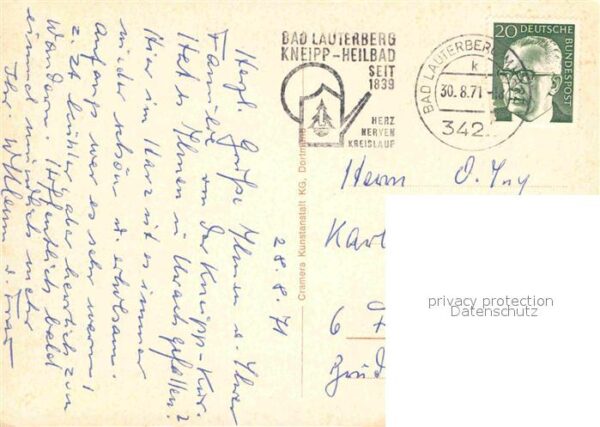 BAD LAUTERBERG
KNEIPP-HEILBAD
SEIT
1839
HERZ
NERVEN
KREISLAUF
BAD LAUTERBERG
k
30.8.71
342
20 DEUTSCHE
BUNDESPOST
28.8.71
Herzl. Grüße Ihnen u. Ihrer
Familie von der Kneipp-Kur.
Hat es Ihnen in Urach gefallen?
Hier im Harz ist es immer
wieder schön u. erholsam.
Anfangs war es sehr warm,
z. Zt. kühler aber herrlich zum
Wandern. Hoffentlich bald
einmal mehr
Ihr u. Frau
Cramers Kunstanstalt KG, Dortmund
Herrn O. Ing
Karl
6
privacy protection
Datenschutz